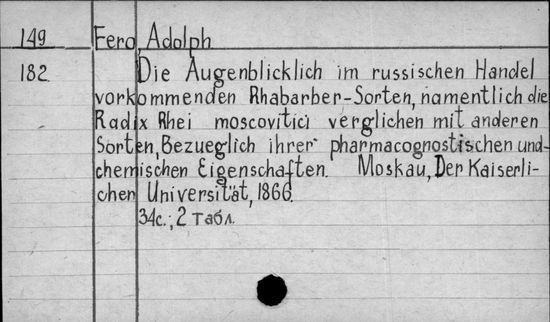 149 Fero, Adolph
182 Die Augenblicklich im russischen Handel
vorkommenden Rhabarber-Sorten, namentlich die
Radix Rhei moscovitici verglichen mit anderen
Sorten, Bezueglich ihrer pharmacognostischen und
chemischen Eigenschaften. Moskau, Der Kaiserli-
chen Universität, 1866.
34c.; 2 табл.